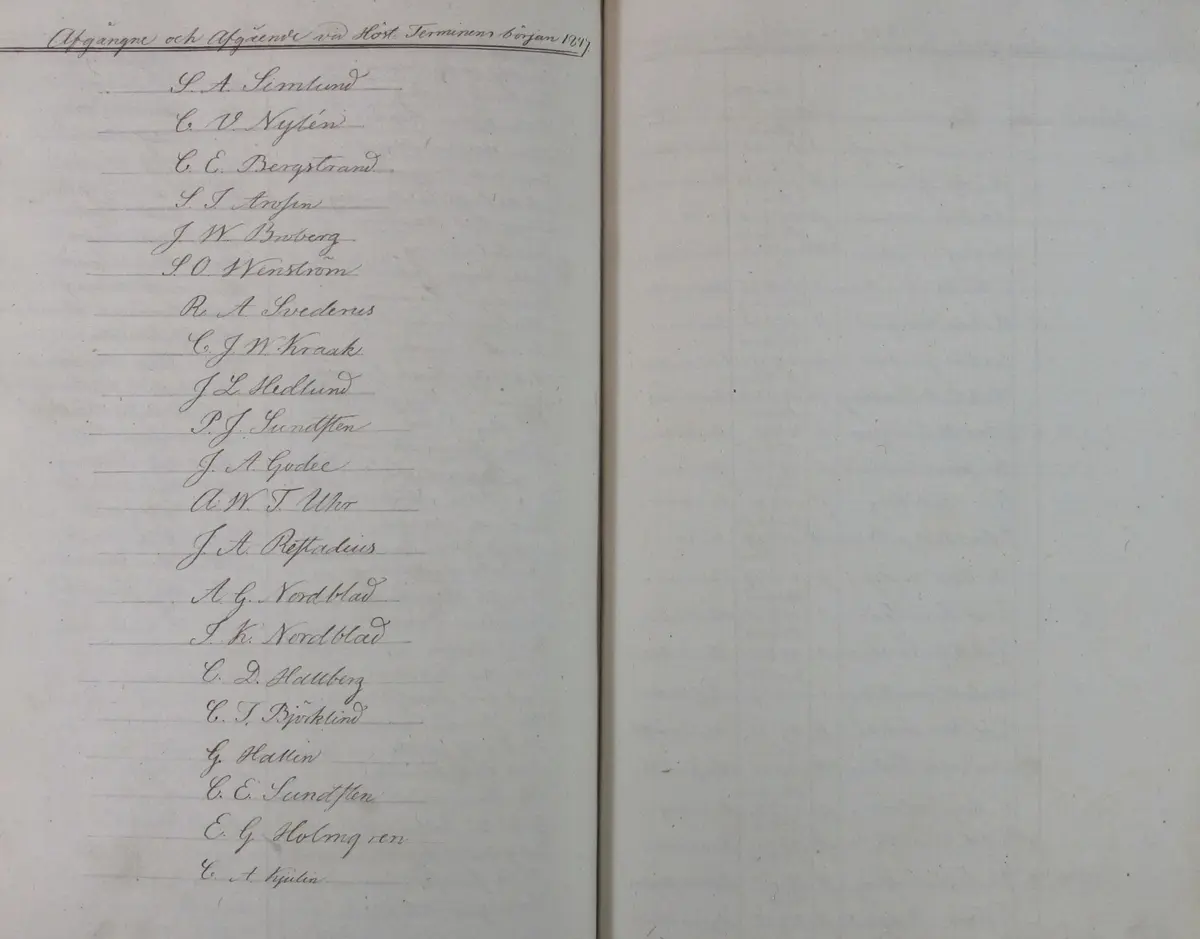 Afgångne och Afgående vid Höst Terminens början 1847
S. A. Semlund
C. V. Nylén
C. E. Bergstrand
S. T. Arosin
J. W. Broberg
S. O. Wenström
R. A. Svedenus
C. J. W. Kraak
J. L. Hedlund
P. J. Sundsten
J. A. Godee
A. W. T. Uhr
J. A. Restadius
A. G. Nordblad
J. K. Nordblad
C. D. Hallberg
C. T. Björklind
G. Hallin
C. E. Sundsten
E. G Holmgren
C. A Kjulin